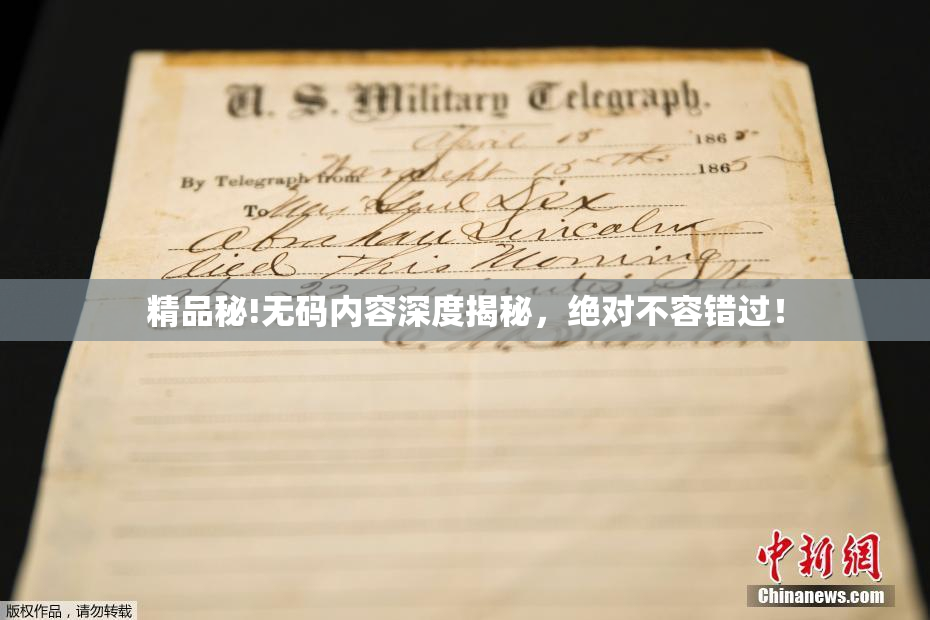 U. S. Military Telegraph.
April 15 1865
By Telegraph from War Dept 15th 1865
To Maj Genl Dix
Abraham Lincoln
died This Morning
at 22 minutes after
精品秘!无码内容深度揭秘，绝对不容错过！
E. M. Stanton
中新網
Chinanews.com
版权作品，请勿转载